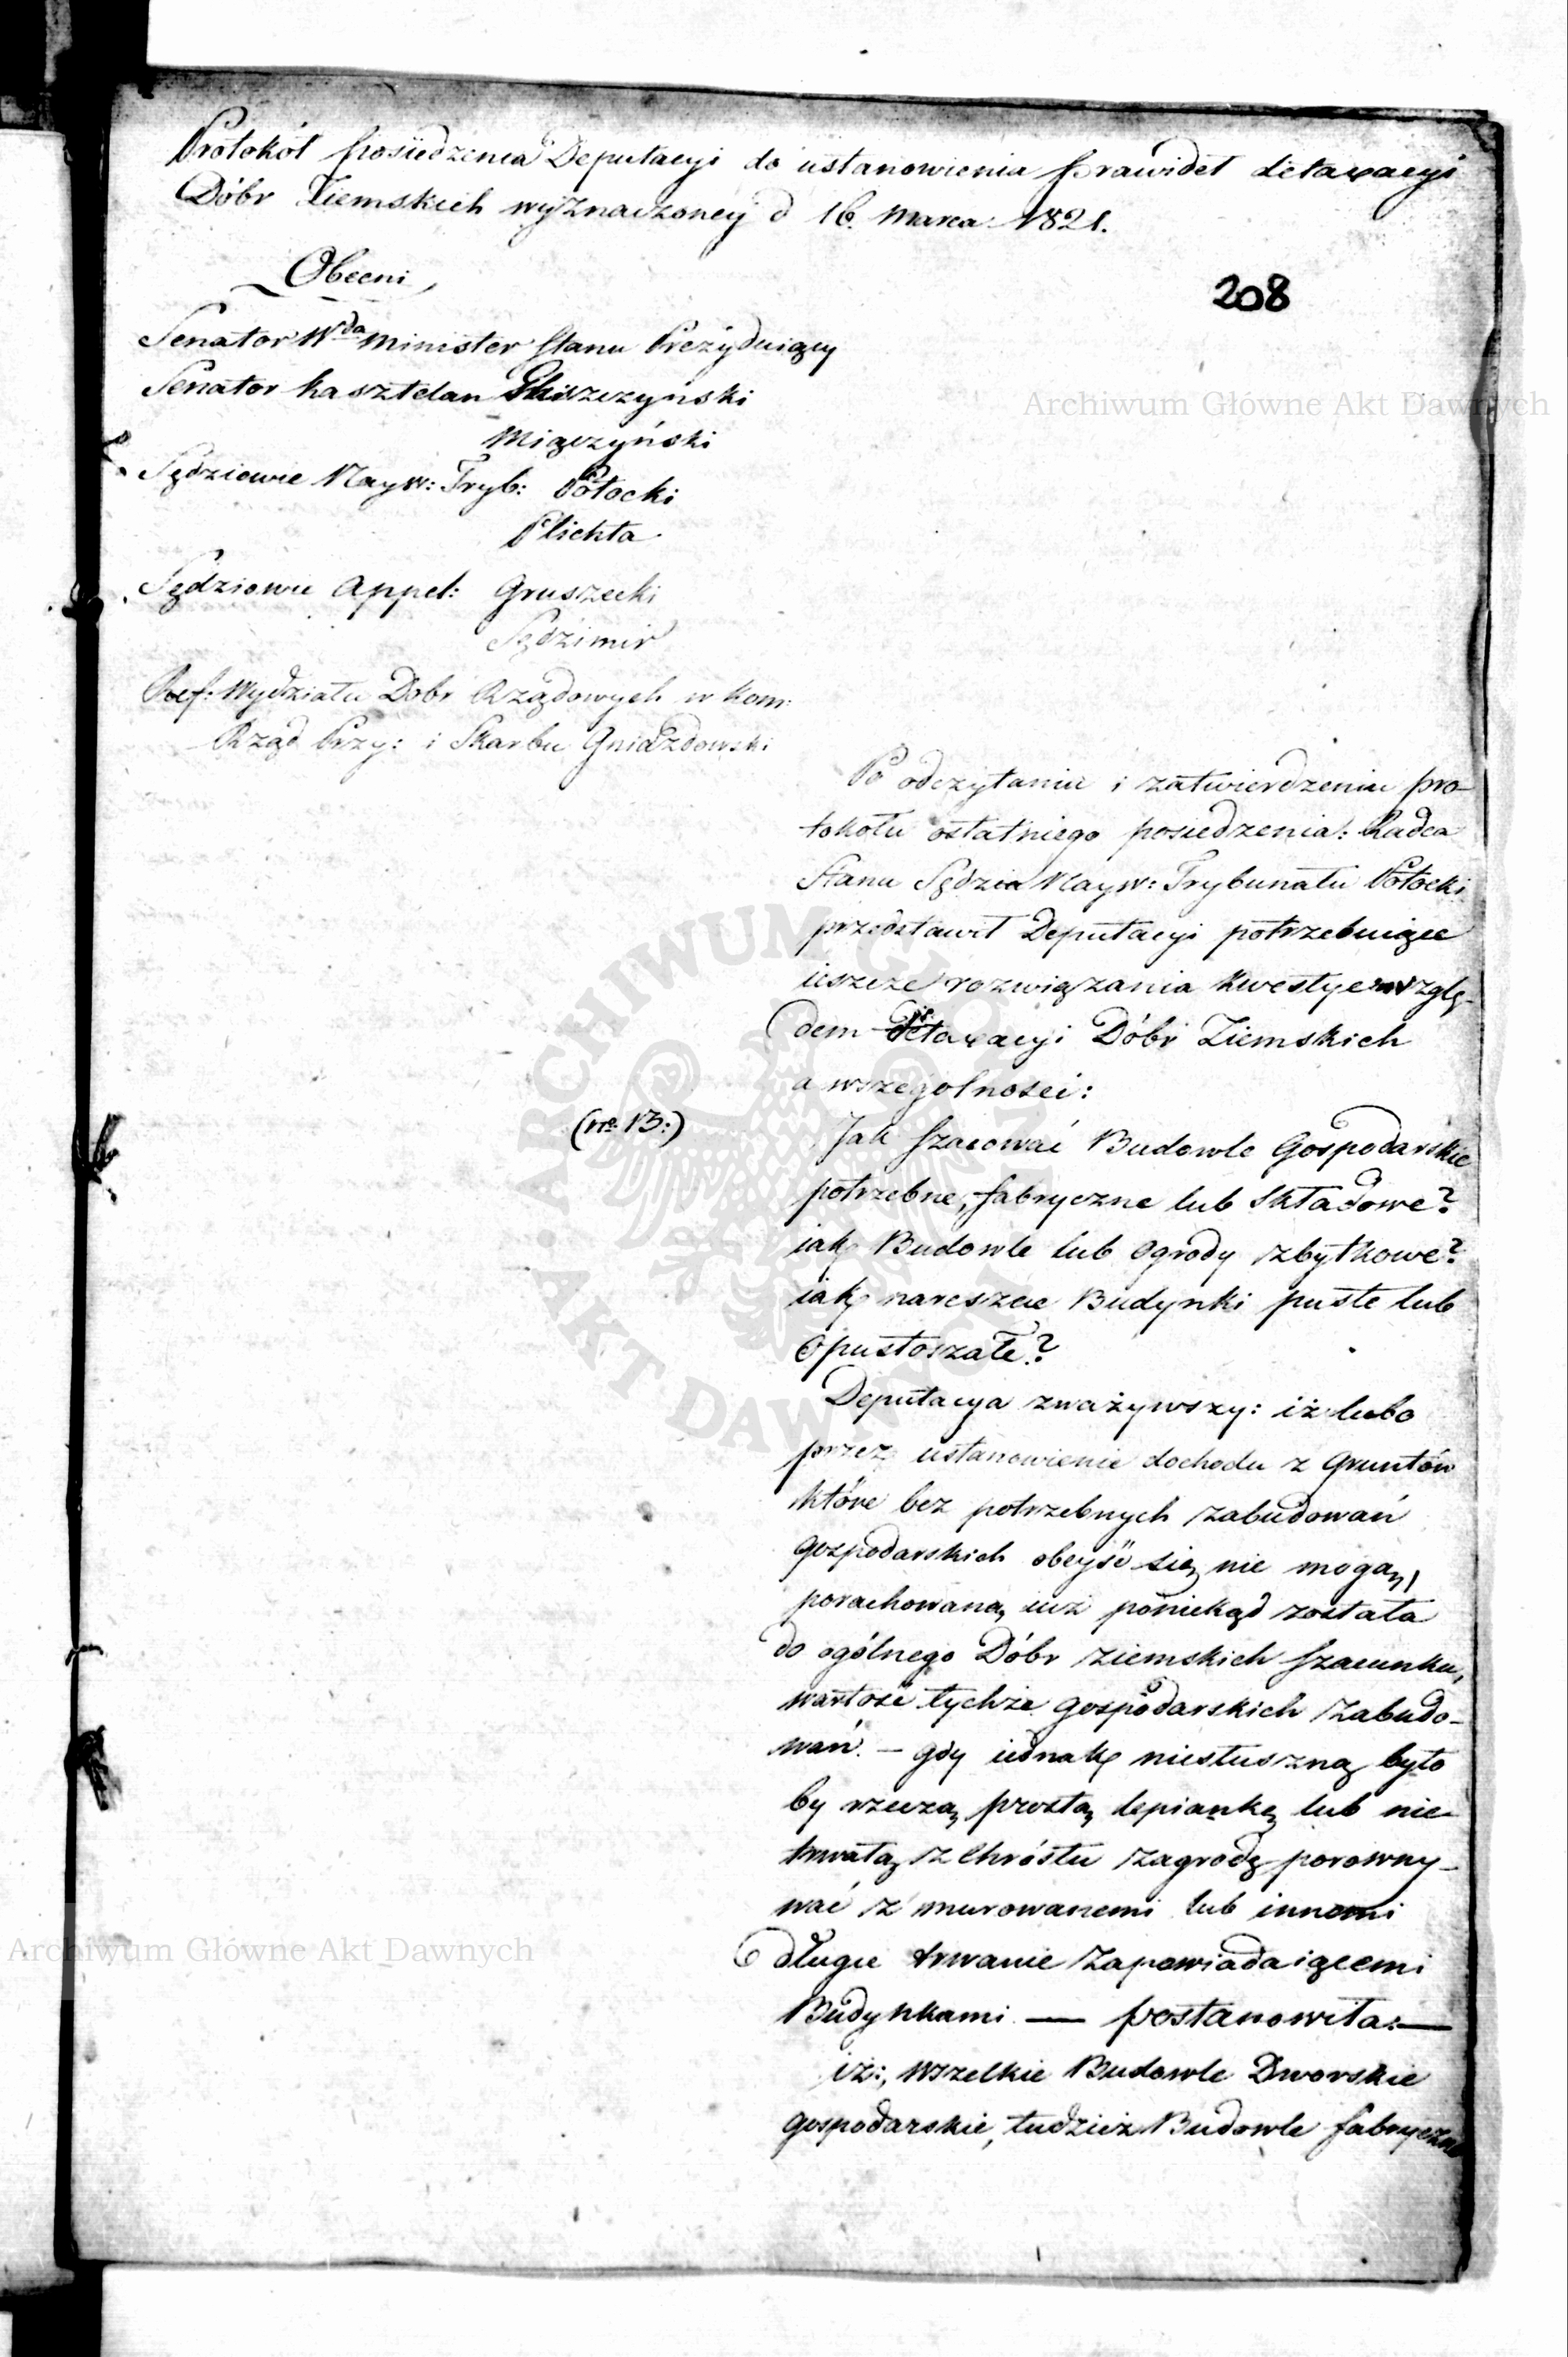 Protokół posiedzenia Deputacyi do ustanowienia prawideł detaxacyi
Dóbr Ziemskich wyznaczoney d 16. Marca 1821.
208
Obecni
Senator Wda Minister Stanu Prezyduiący
Senator Kasztelan
Miączyński
Sędziowie Nayw: Tryb: Potocki
Plichta
Sędziowie Appel: Gruszecki
Sędzimir
Ref: Wydziału Dobr Rządowych w Kom:
Rząd Przy: i Skarbu Gniazdowski
Po odczytaniu i zatwierdzeniu pro-
tokołu ostatniego posiedzenia: Radca
Stanu Sędzia Nayw: Trybunału Potocki
przedstawił Deputacyi potrzebuiące
ieszcze rozwiązania kwestye wzglę-
dem detaxacyi Dóbr Ziemskich
a wszególnosci:
(no 13:)
Jak szacować Budowle Gospodarskie
potrzebne, fabryczne lub składowe?
iak Budowle lub Ogrody zbytkowe?
iak nareszcie Budynki puste lub
Opustoszałe?
Deputacya zważywszy: iż lubo
przez ustanowienie dochodu z Gruntów
które bez potrzebnych zabudowań
gospodarskich obeyść się nie mogą,
porachowaną iuż poniekąd została
do ogólnego Dóbr ziemskich szacunku,
wartość tychże gospodarskich zabudo-
wań. – gdy iednak niesłuszną było
by rzeczą, prostą, lepiankę lub nie
trwałą z Chróstu zagrodę porowny-
wać z murowanemi lub innemi
długie trwanie zapowiadaiącemi
Budynkami — postanowiła: —
iż:, wszelkie Budowle Dworskie
gospodarskie, tudzież Budowle fabryczne
Archiwum Główne Akt Dawnych
Archiwum Główne Akt Dawnych
ARCHIWUM GŁÓWNE AKT DAWNYCH